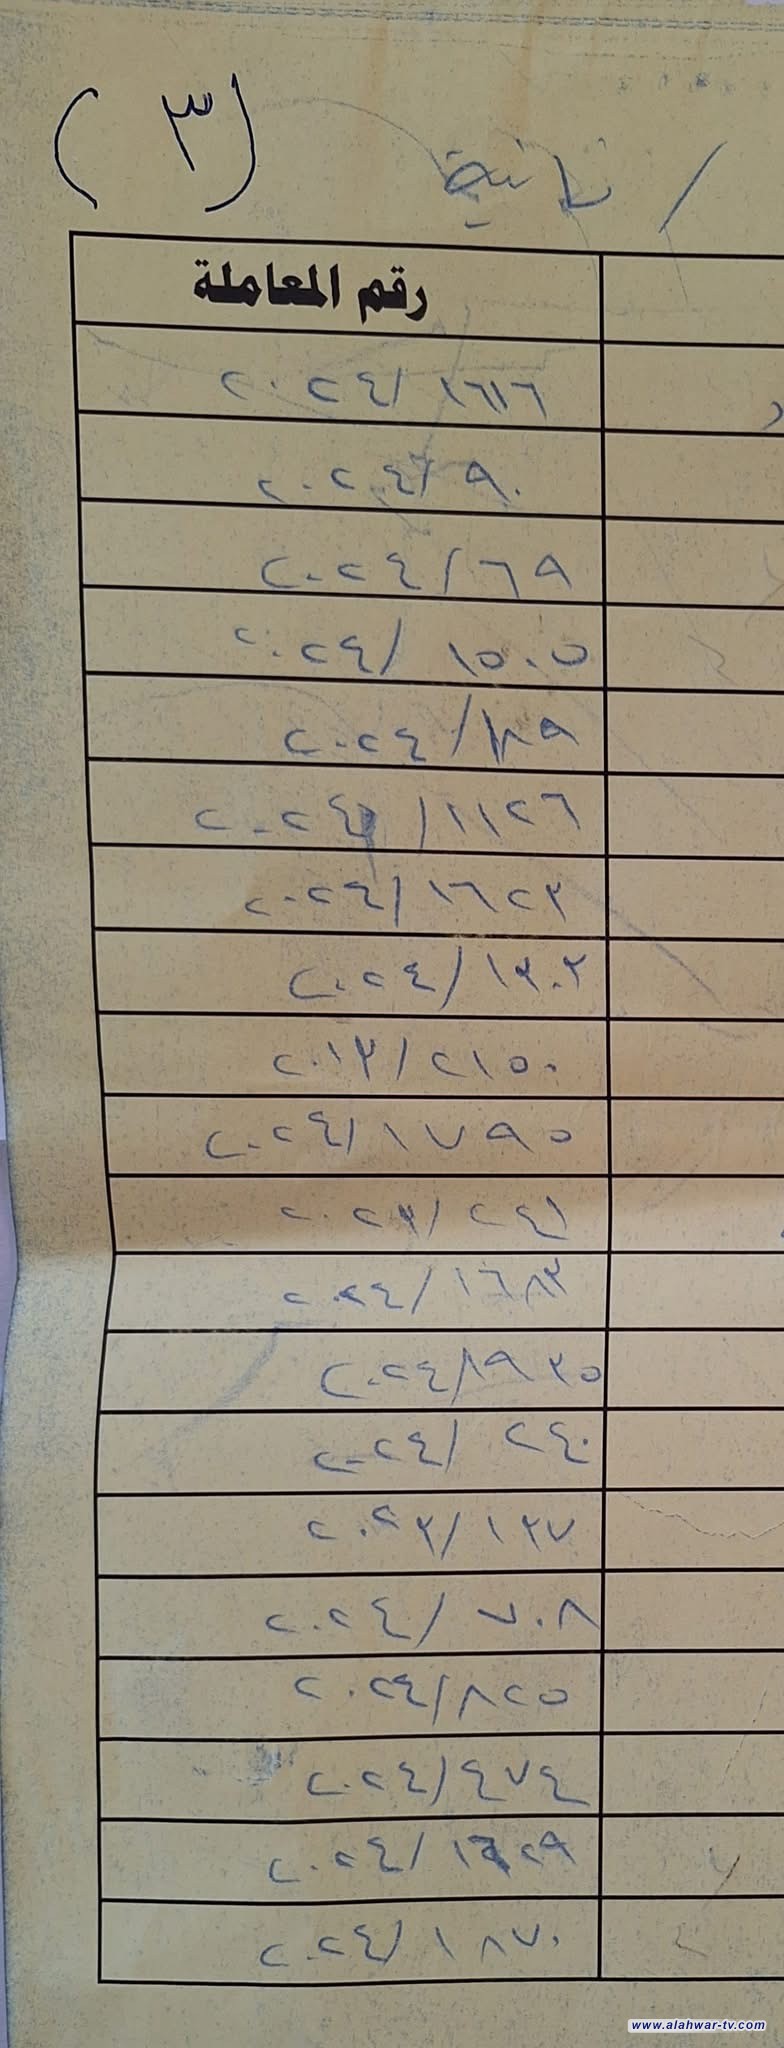 (٣)
/ ثانية
رقم المعاملة
١٦١٦/ ٢٠٢٤
٩٠ /٢٠٢٤
٦٩ /٢٠٢٤
١٥٠٥ /٢٠٢٤
/٢٠٢٤
١١٢٦ /٢٠٢٤
١٦٢٣ /٢٠٢٤
١٣٠٢ /٢٠٢٤
٢١٥٠ /٢٠١٣
١٧٩٥ /٢٠٢٤
٢٤١ /
١٦٨٣ /٢٠٢٤
١٩٣٥ /٢٠٢٤
٢٤٠ /٢٠٢٤
١٣٧ /٢٠٢٣
٧٠٨ /٢٠٢٤
٨٢٥ /٢٠٢٤
٤٧٤ /٢٠٢٤
/٢٠٢٤
١٨٧٠ /٢٠٢٤
www.alahwar-tv.com